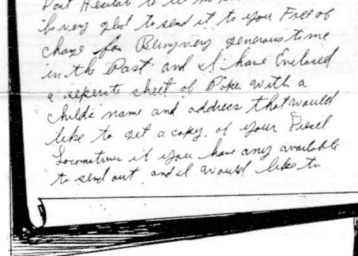 Dont Hesitat to
be very glad to send it to you Free of
charge for Being very generous to me
in the Past and I have Enclosed
a seperate sheet of Paper with a
childs name and address that would
like to get a copy. of your Diesel
Locomotives if you have any available
to send out and I would like to